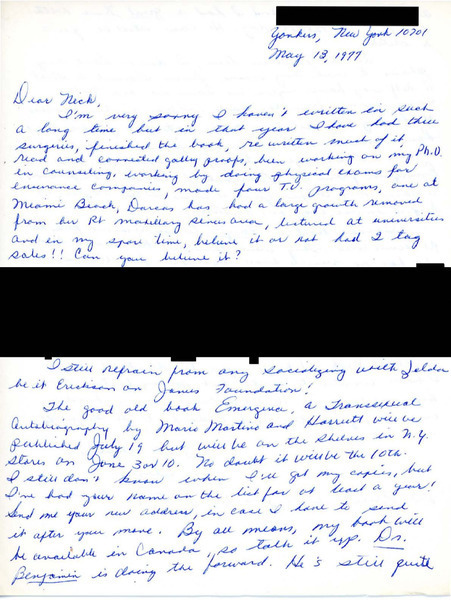 Yonkers, New York 10701
May 13, 1977
Dear Nick,
I'm very sorry I haven't written in such
a long time but in that year I have had three
surgeries, finished the book, re written most of it,
read and corrected galley proofs, been working on my Ph.D.
in Counseling, working by doing physical exams for
insurance companies, made four TV programs, one at
Miami Beach, has had a large growth removed
from her Rt maxillary sinus area, lectured at universities
and in my spare time, believe it or not had 2 tag
sales!! Can you believe it?
I still refrain from any socializing with Zelda
be it Erickson or James Foundation!
The good old book Emergence, a Transsexual
Autobiography by Mario Martino and Harriett will be
published July 19 but will be on the shelves in N.Y.
Stores on June 3 or 10. No doubt it will be the 10th.
I still don't know when I'll get my copies, but
I've had your name on the list for at least a year!
Send me your new address, in case I have to send
it after your move. By all means, my book will
be available in Canada, so talk it up. Dr.
Benjamin is doing the forward. He's still quite